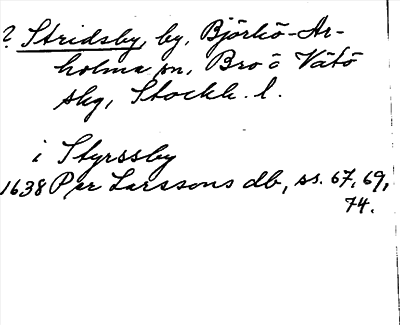 ? Stridsby, by, Björkö-Ar-
holma sn, Bro o Vätö
skg, Stockh. l.
i Styrssby
1638 Per Larssons db, ss. 67, 69,
74.